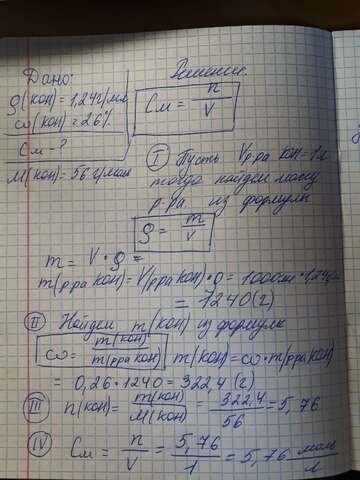 Дано:
ρ(кон) = 1,24г/мл
ω(кон) = 26%
См - ?
М(кон) = 56 г/моль
Решение.
См = n/V
I Пусть Vр.ра кон = 1л
тогда найдем массу
р-ра из формулы
ρ = m/V
m = V · ρ =
m(рра кон) = V(рра кон) · ρ = 1000мл · 1,24г/мл
= 1240(г)
II Найдем m(кон) из формулы
ω = m(кон)/m(рра кон) m(кон) = ω · m(рра кон)
= 0,26 · 1240 = 322,4 (г)
III n(кон) = m(кон)/М(кон) = 322,4/56 = 5,76
IV См = n/V = 5,76/1 = 5,76 моль/л